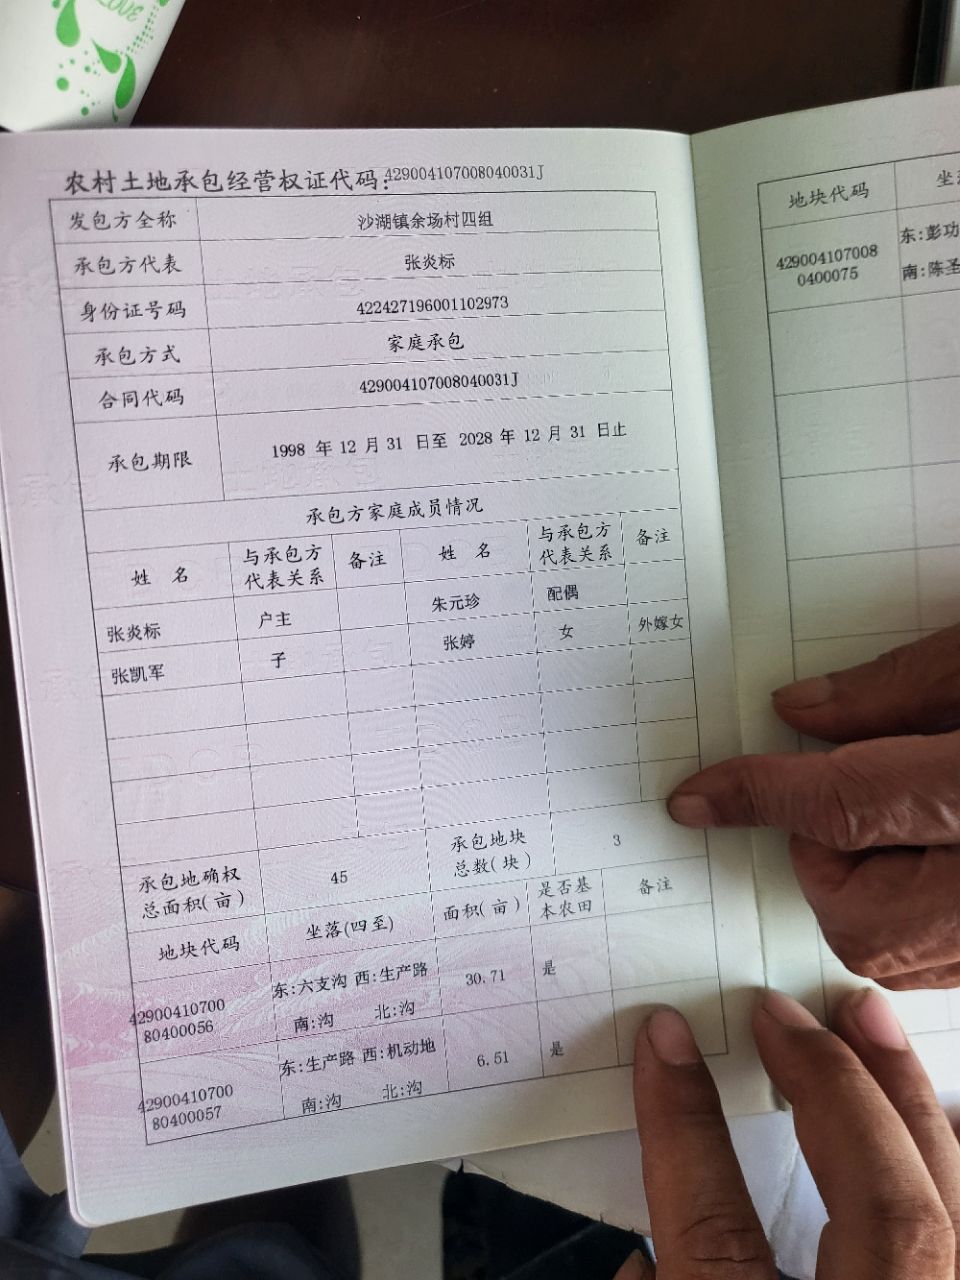 LOVE
农村土地承包经营权证代码:429004107008040031J
发包方全称 沙湖镇余场村四组
承包方代表 张炎标
身份证号码 422427196001102973
承包方式 家庭承包
合同代码 429004107008040031J
承包期限 1998 年 12 月 31 日至 2028 年 12 月 31 日止
承包方家庭成员情况
姓 名 与承包方代表关系 备注 姓 名 与承包方代表关系 备注
张炎标 户主 朱元珍 配偶
张凯军 子 张婷 女 外嫁女
承包地确权总面积(亩) 45 承包地块总数(块) 3
地块代码 坐落(四至) 面积(亩) 是否基本农田 备注
42900410700 东:六支沟 西:生产路 30.71 是
80400056 南:沟 北:沟
42900410700 东:生产路 西:机动地 6.51 是
80400057 南:沟 北:沟
地块代码
429004107008 东:彭功
0400075 南:陈圣